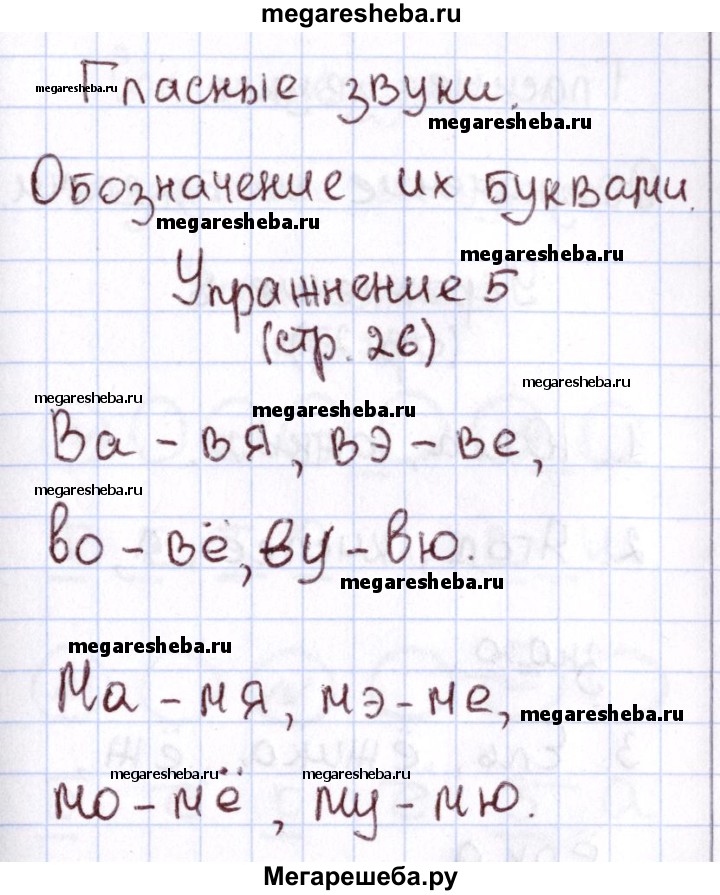 megaresheba.ru
Гласные звуки.
megaresheba.ru
megaresheba.ru
Обозначение их буквами.
megaresheba.ru
megaresheba.ru
Упражнение 5
(стр. 26)
megaresheba.ru
megaresheba.ru
megaresheba.ru
Ва - вя, вэ - ве,
megaresheba.ru
во - вё, ву - вю.
megaresheba.ru
megaresheba.ru
Ма - мя, мэ - ме,
megaresheba.ru
megaresheba.ru
megaresheba.ru
мо - мё, му - мю.
Мегарешеба.ру